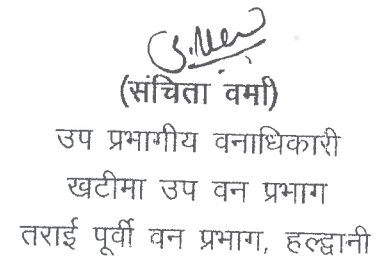 (संचिता वर्मा)
उप प्रभागीय वनाधिकारी
खटीमा उप वन प्रभाग
तराई पूर्वी वन प्रभाग, हल्द्वानी